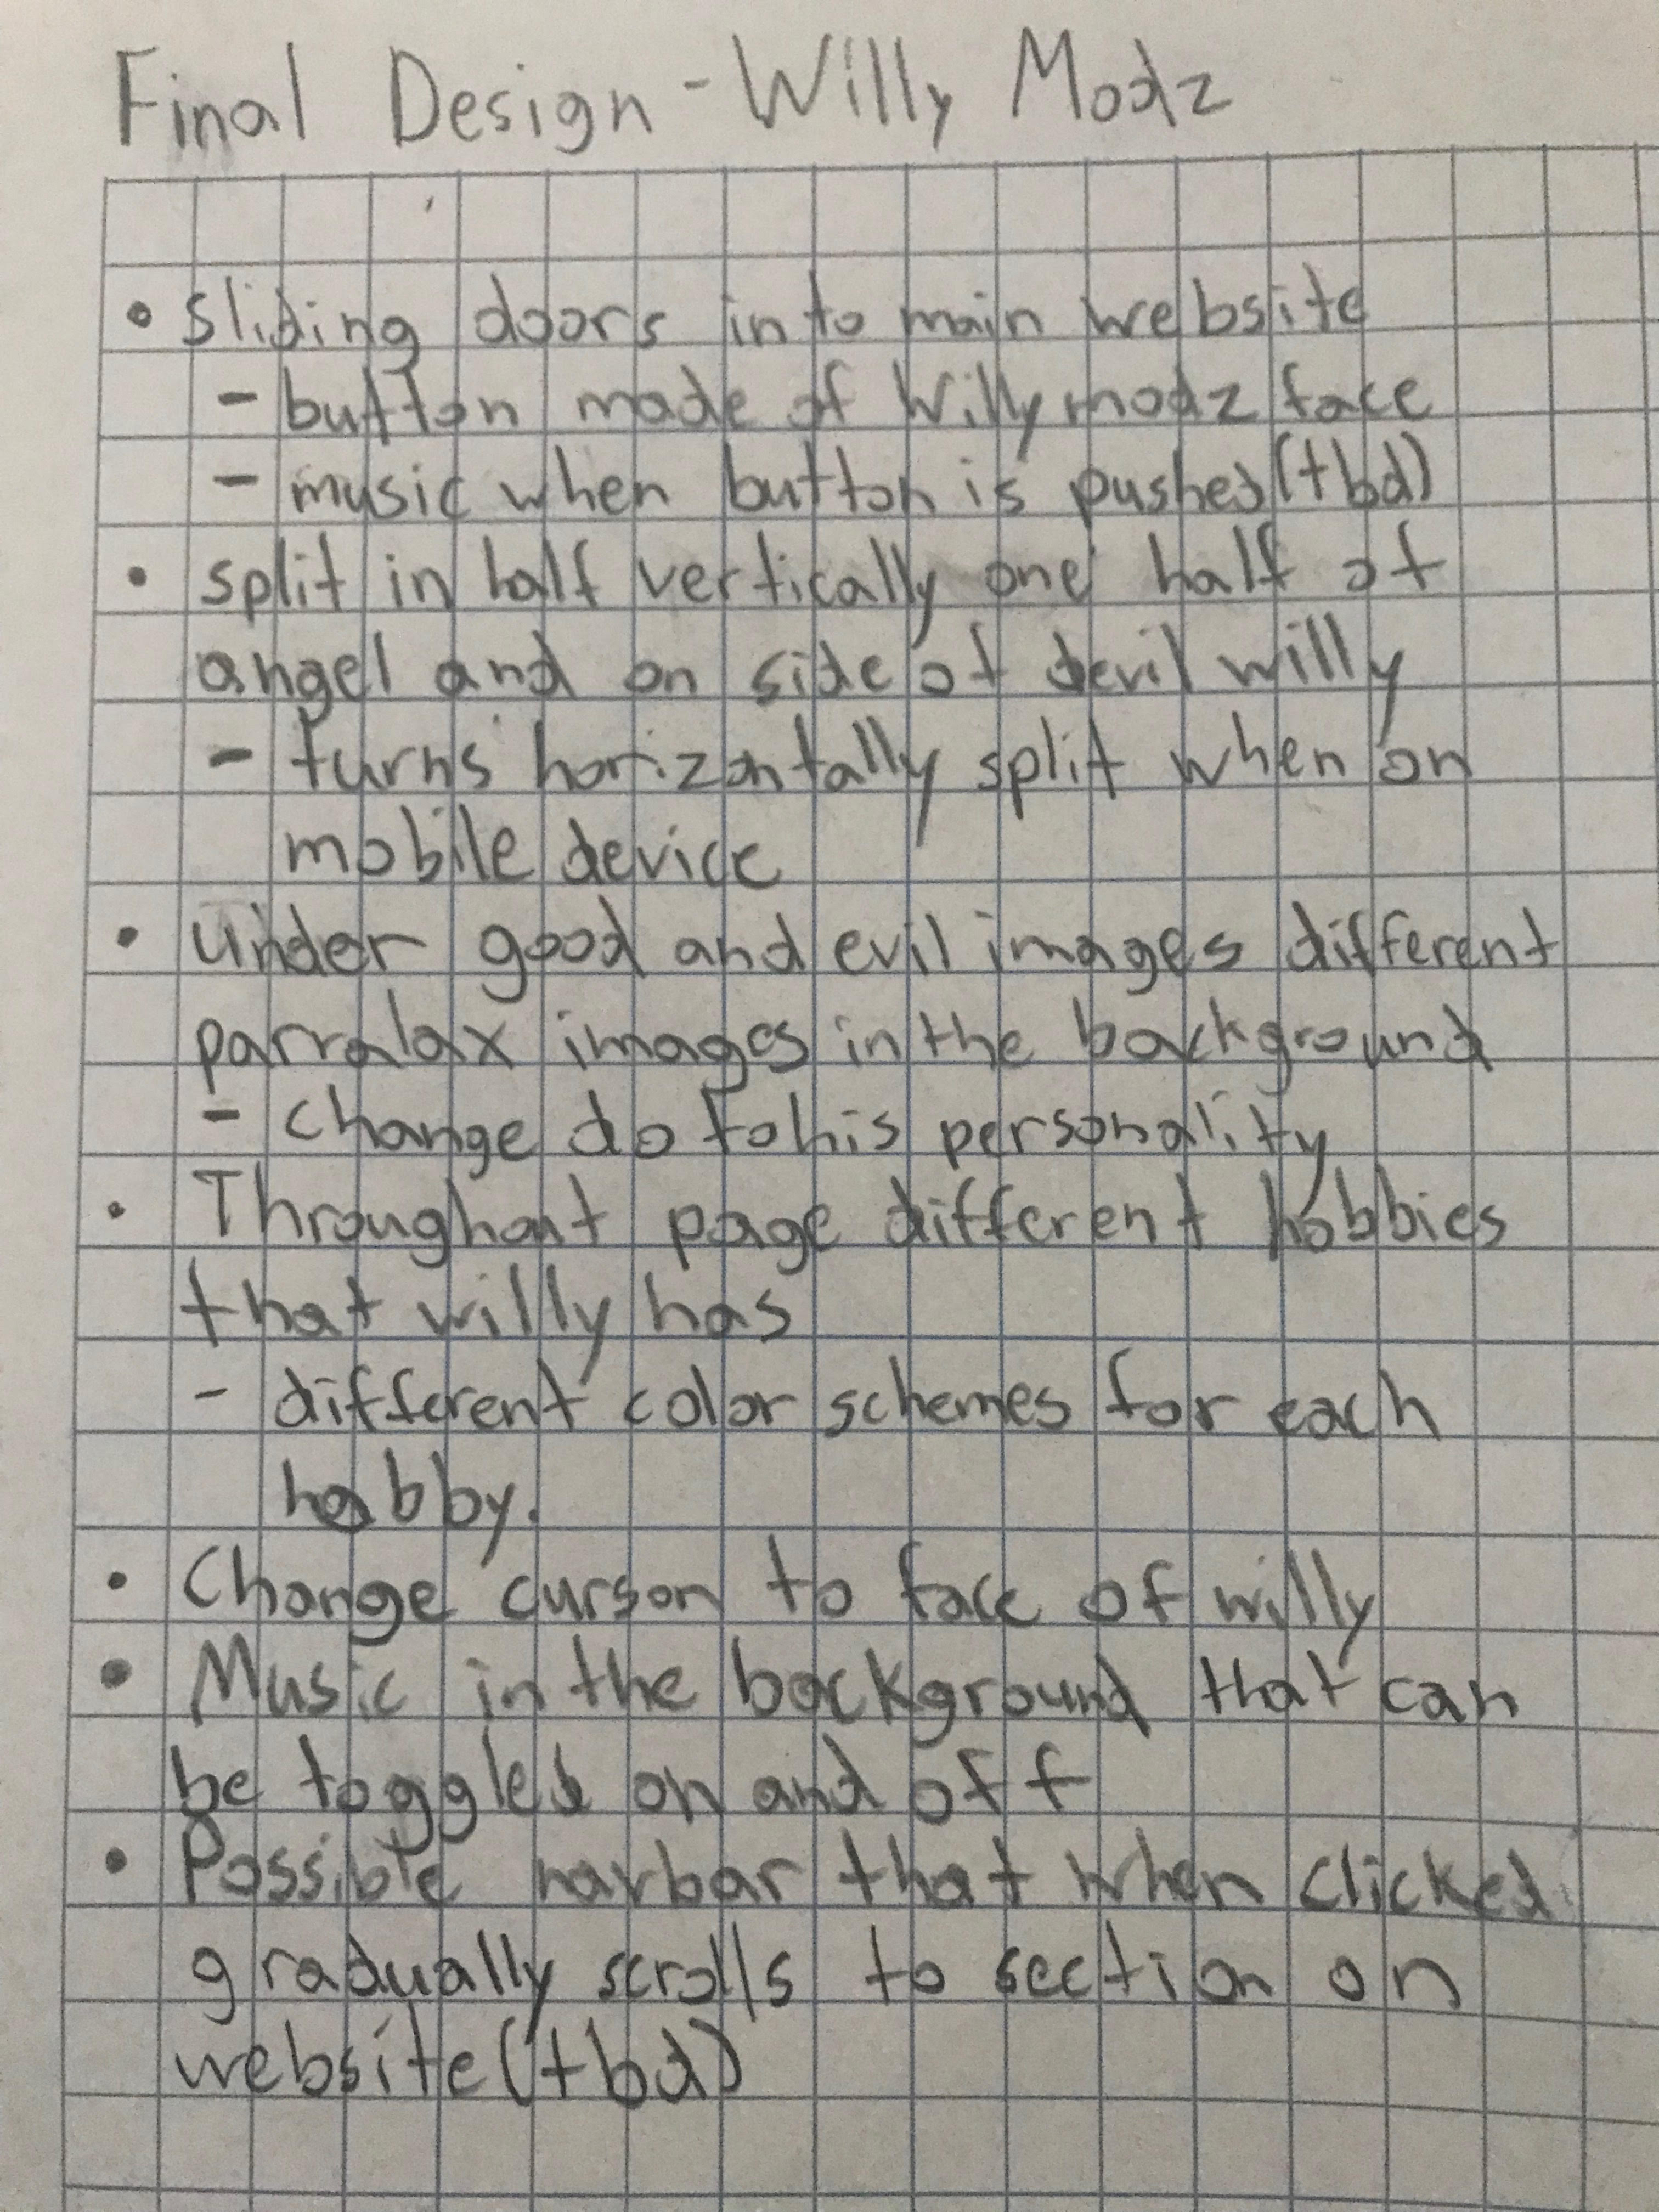 Final Design - Willy Modz
• sliding doors into main website
- button made of Willymodz face
- music when button is pushed (tbd)
• split in half vertically one half of
angel and on side of devil willy
- turns horizontally split when on
mobile device
• under good and evil images different
parralax images in the background
- change do to his personality
• Throughout page different hobbies
that willy has
- different color schemes for each
hobby.
• Change curson to face of willy
• Music in the background that can
be toggled on and off
• Possible navbar that when clicked
gradually scrolls to section on
website (tbd)